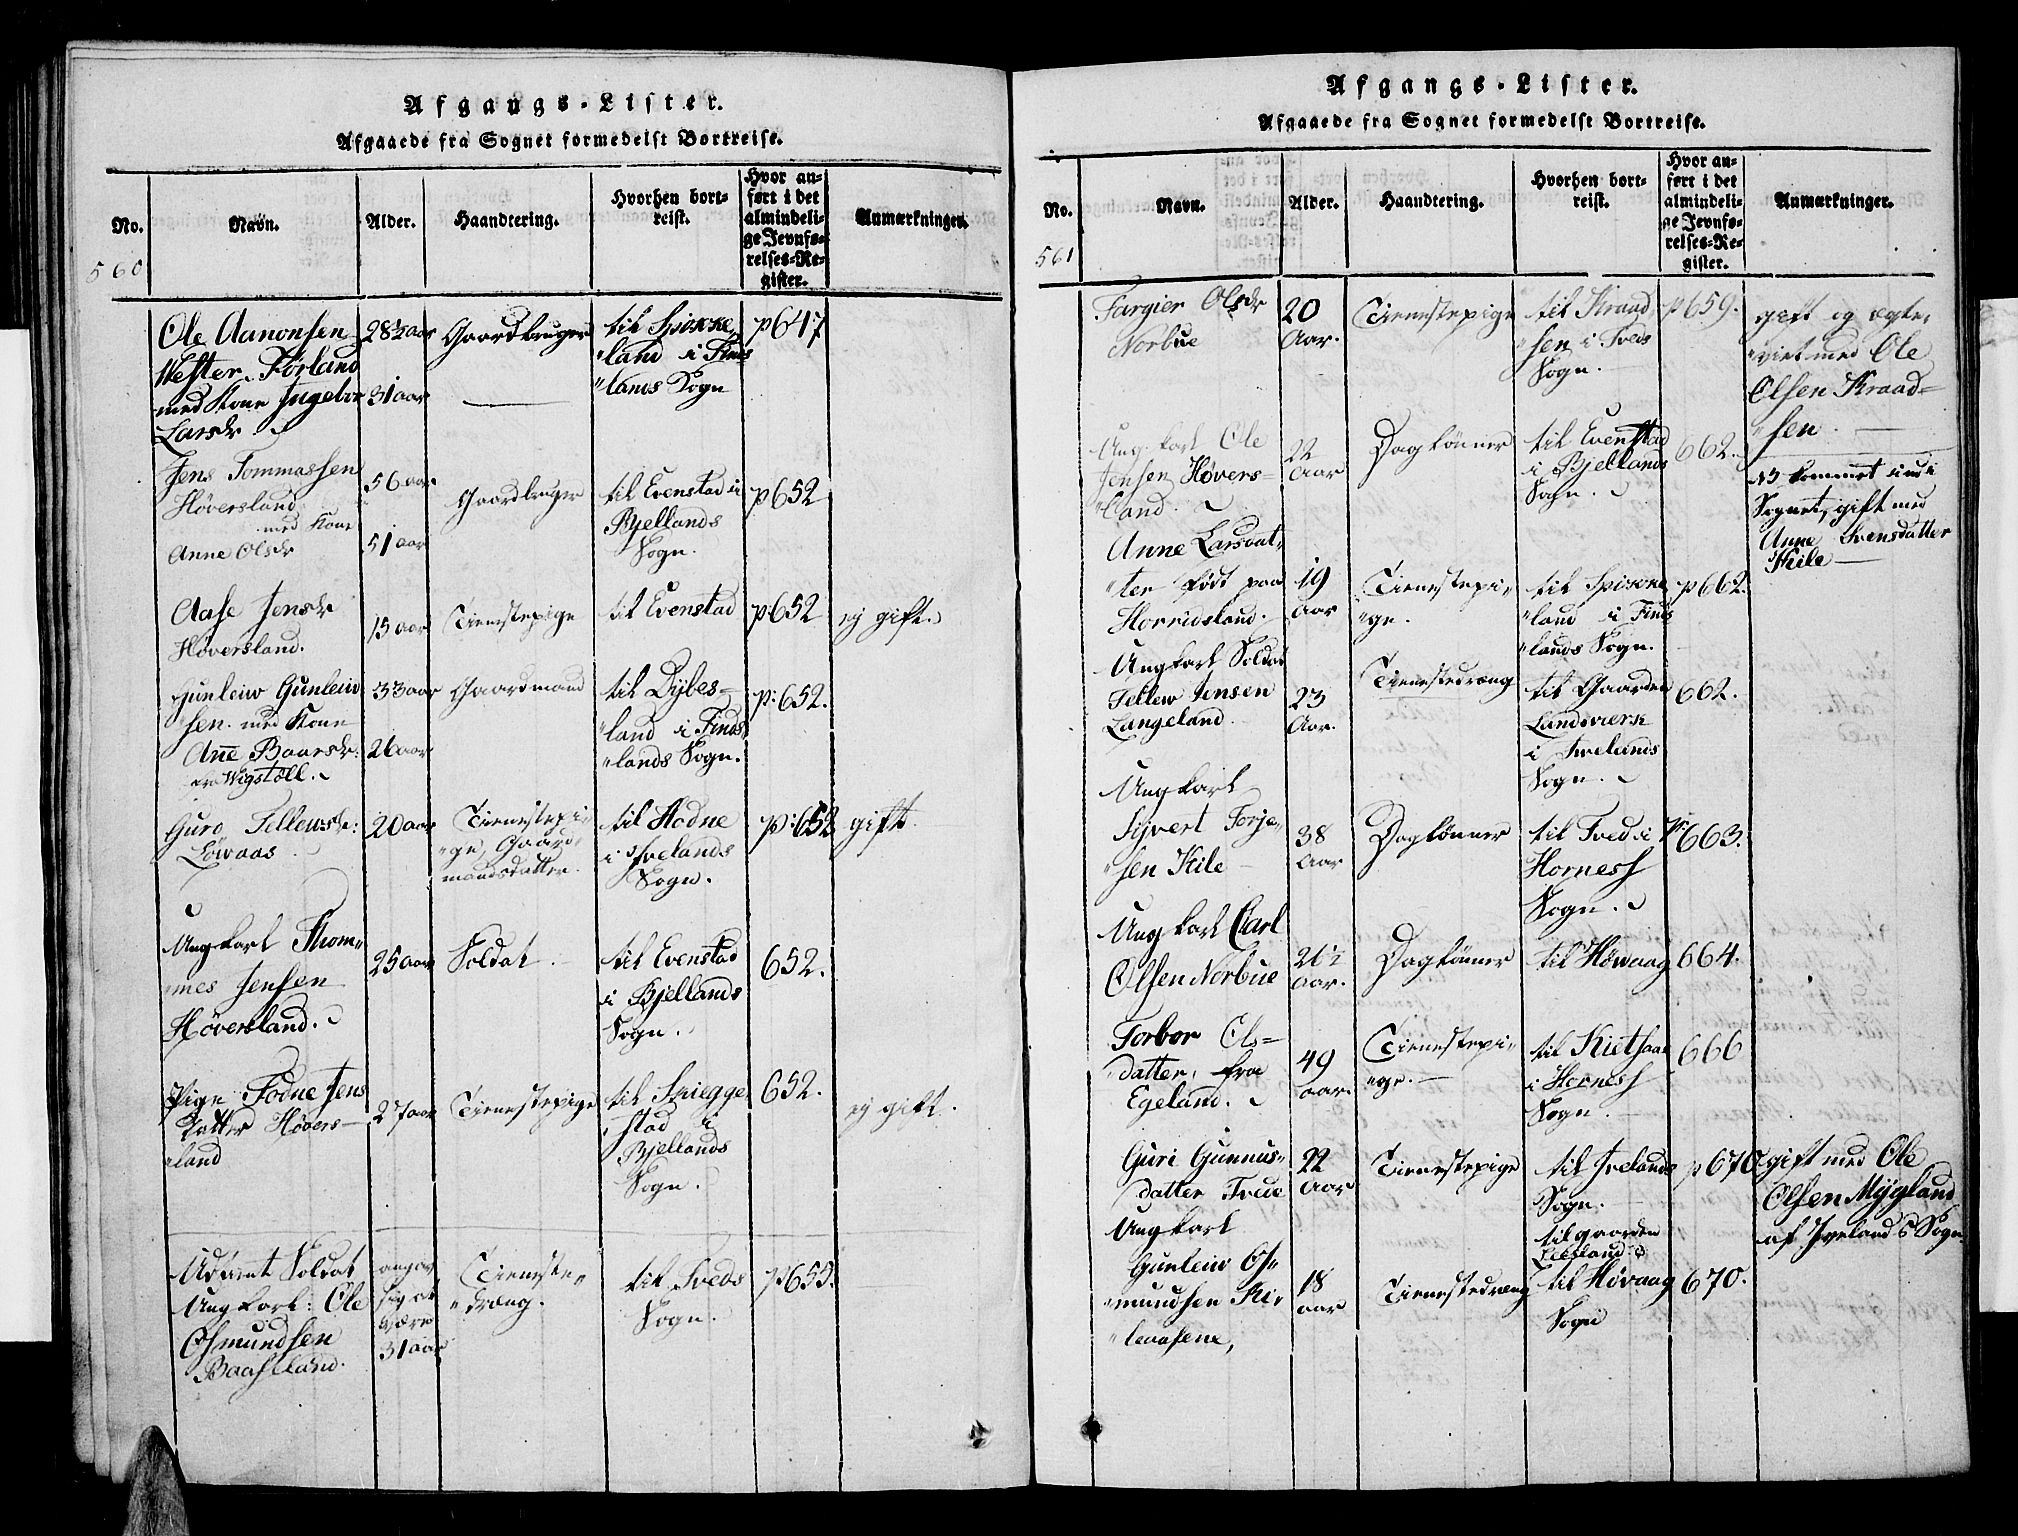 Afgangs-Lister.
Afgaaede fra Sognet formedelst Bortreise.
No.
560
Navn.
Alder.
Haandtering.
Hvorhen bort-
reist.
Hvor an-
ført i det
almindeli-
ge Jevnfø-
relses-Re-
gister.
Anmærkninger.
Ole Aanonsen
Wester Førland
med Kone Ingebor
Larsdr
28½ aar
31 aar
Gaardbruger
til Spikke,
"land i Finds
"lands Sogn
p 647
Jens Tommassen
Høversland
med Kone
Anne Olsdr
56 aar
51 aar
Gaardbruger
til Evenstad i
Bjellands
Sogn.
p 652
Aase Jensdr
Høversland.
15 aar
Tienestepige
til Evenstad
p 652
ej gift.
Gunleiw Gunleiw
sen. med Kone
Anne Baarsdr:
Wigstøll.
33 aar
26 aar
Gaardmand
til Dybes=
"land i Finds
"lands Sogn.
p: 652.
Guro Tellewsdr:
Løwaas
20 aar
Tienestepi-
"ge, Gaard
mandsdatter.
til Hodne
i Ivelands
Sogn.
p: 652
gift.
Ungkarl Thom-
"mes Jensen
Høversland.
25 aar
Soldat.
til Evenstad
i Bjellands
Sogn.
652.
Pige Todne Jens
Datter Høvers-
"land
27 aar
Tienestepige
til Spiegge,
stad i
Bjellands
Sogn.
652.
ej gift.
Udtient Soldat
Ungkarl: Ole
Osmundsen
Baasland.
angav
sig at
være
31 aar
Tieneste-
"dræng.
til Tveds
Sogn.
p 655.
Afgangs-Lister.
Afgaaede fra Sognet formedelst Bortreise.
No.
561
Navn.
Alder.
Haandtering.
Hvorhen bort-
reist.
Hvor an-
ført i det
almindeli-
ge Jevnfø-
relses-Re-
gister.
Anmærkninger.
Targier Olsdr
Norbue
20
Aar.
Tienestepige
til Kraad,
"sen i Tveds
Sogn.
p 659.
gift og ægte,
"viet med Ole
Olsen Kraad=
"sen.
Ungkarl Ole
Jensen Høvers-
"land.
22
Aar
DagLønner
til Evenstad
i Bjellands
Sogn.
662.
NB kommet ind i
Sognet, gift med
Anne Svensdatter
Kile
Anne Larsdat,
"ter født paa
Horridsland.
19
Aar
Tienestepi-
"ge.
til Spikke
"land i Finds
"lands Sogn.
p 662.
Ungkarl Soldat
Tellew Jensen
Langeland
23
Aar.
Tienestedræng
til Gaarden
Landsvierk
i Ivelands
Sogn.
662.
Ungkarl
Syvert Torje,
"sen Kile
38
Aar
DagLønner
til Tved i
Horness
Sogn.
p: 663.
Ungkarl Carl
Olsen Norbue
26½
Aar.
DagLønner
til Høwaag
664.
Torbor Ols=
datter, fra
Egeland.
49
aar.
Tienestepi-
"ge.
til Kietsaa
i Horness
Sogn.
666
Guri Gunnus-
datter Tvue
22
Aar
Tienestepige
til Ivelands
Sogn.
til gaarden
Leesland
p 670
gift med Ole
Olsen Mygland
af Iveland S Sogn.
Ungkarl
Gunleiw Os-
"mundsen Ki,
"leaasene,
18
aar
Tienestedræng
til Høvaag
Sogn
670.